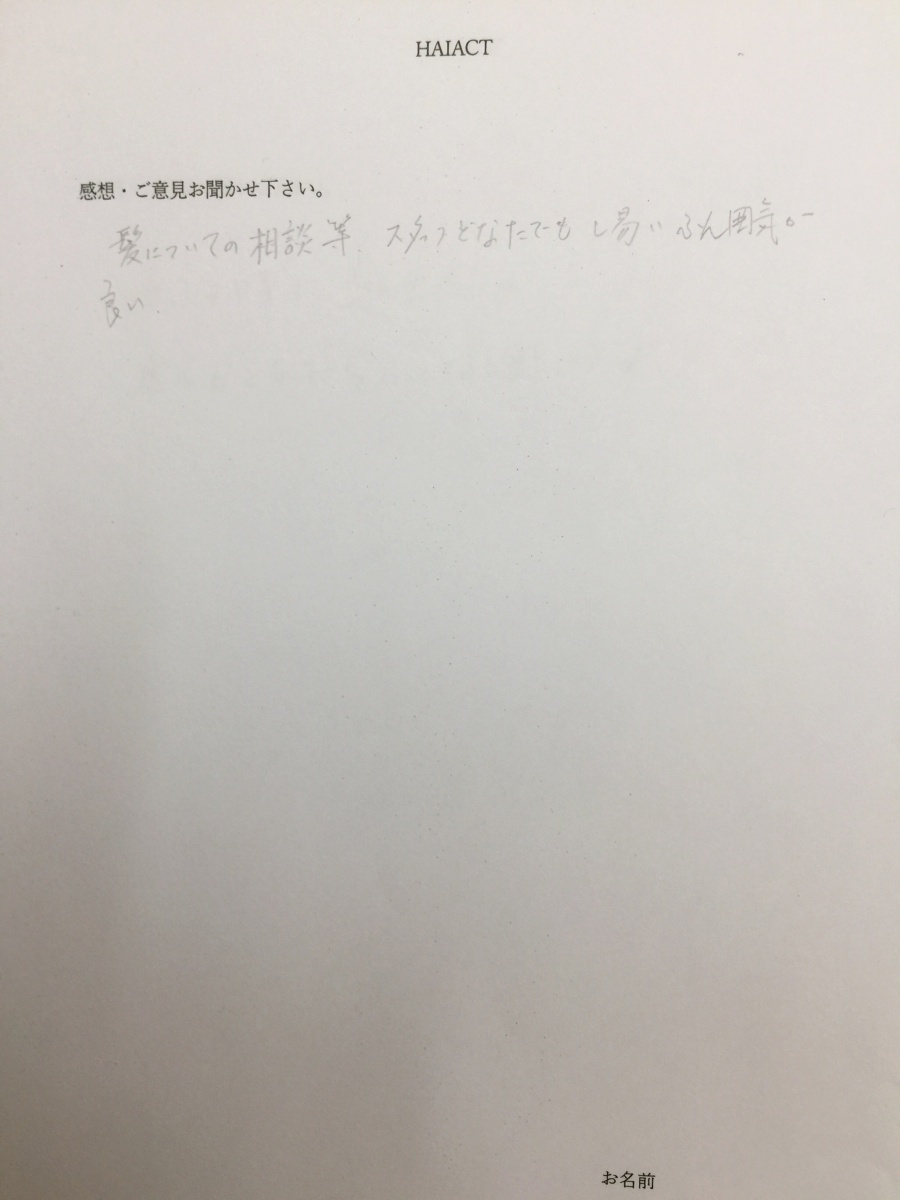 HAIACT
感想・ご意見お聞かせ下さい。
髪についての相談等、スタッフどなたでもし易いふん囲気が
良い.
お名前